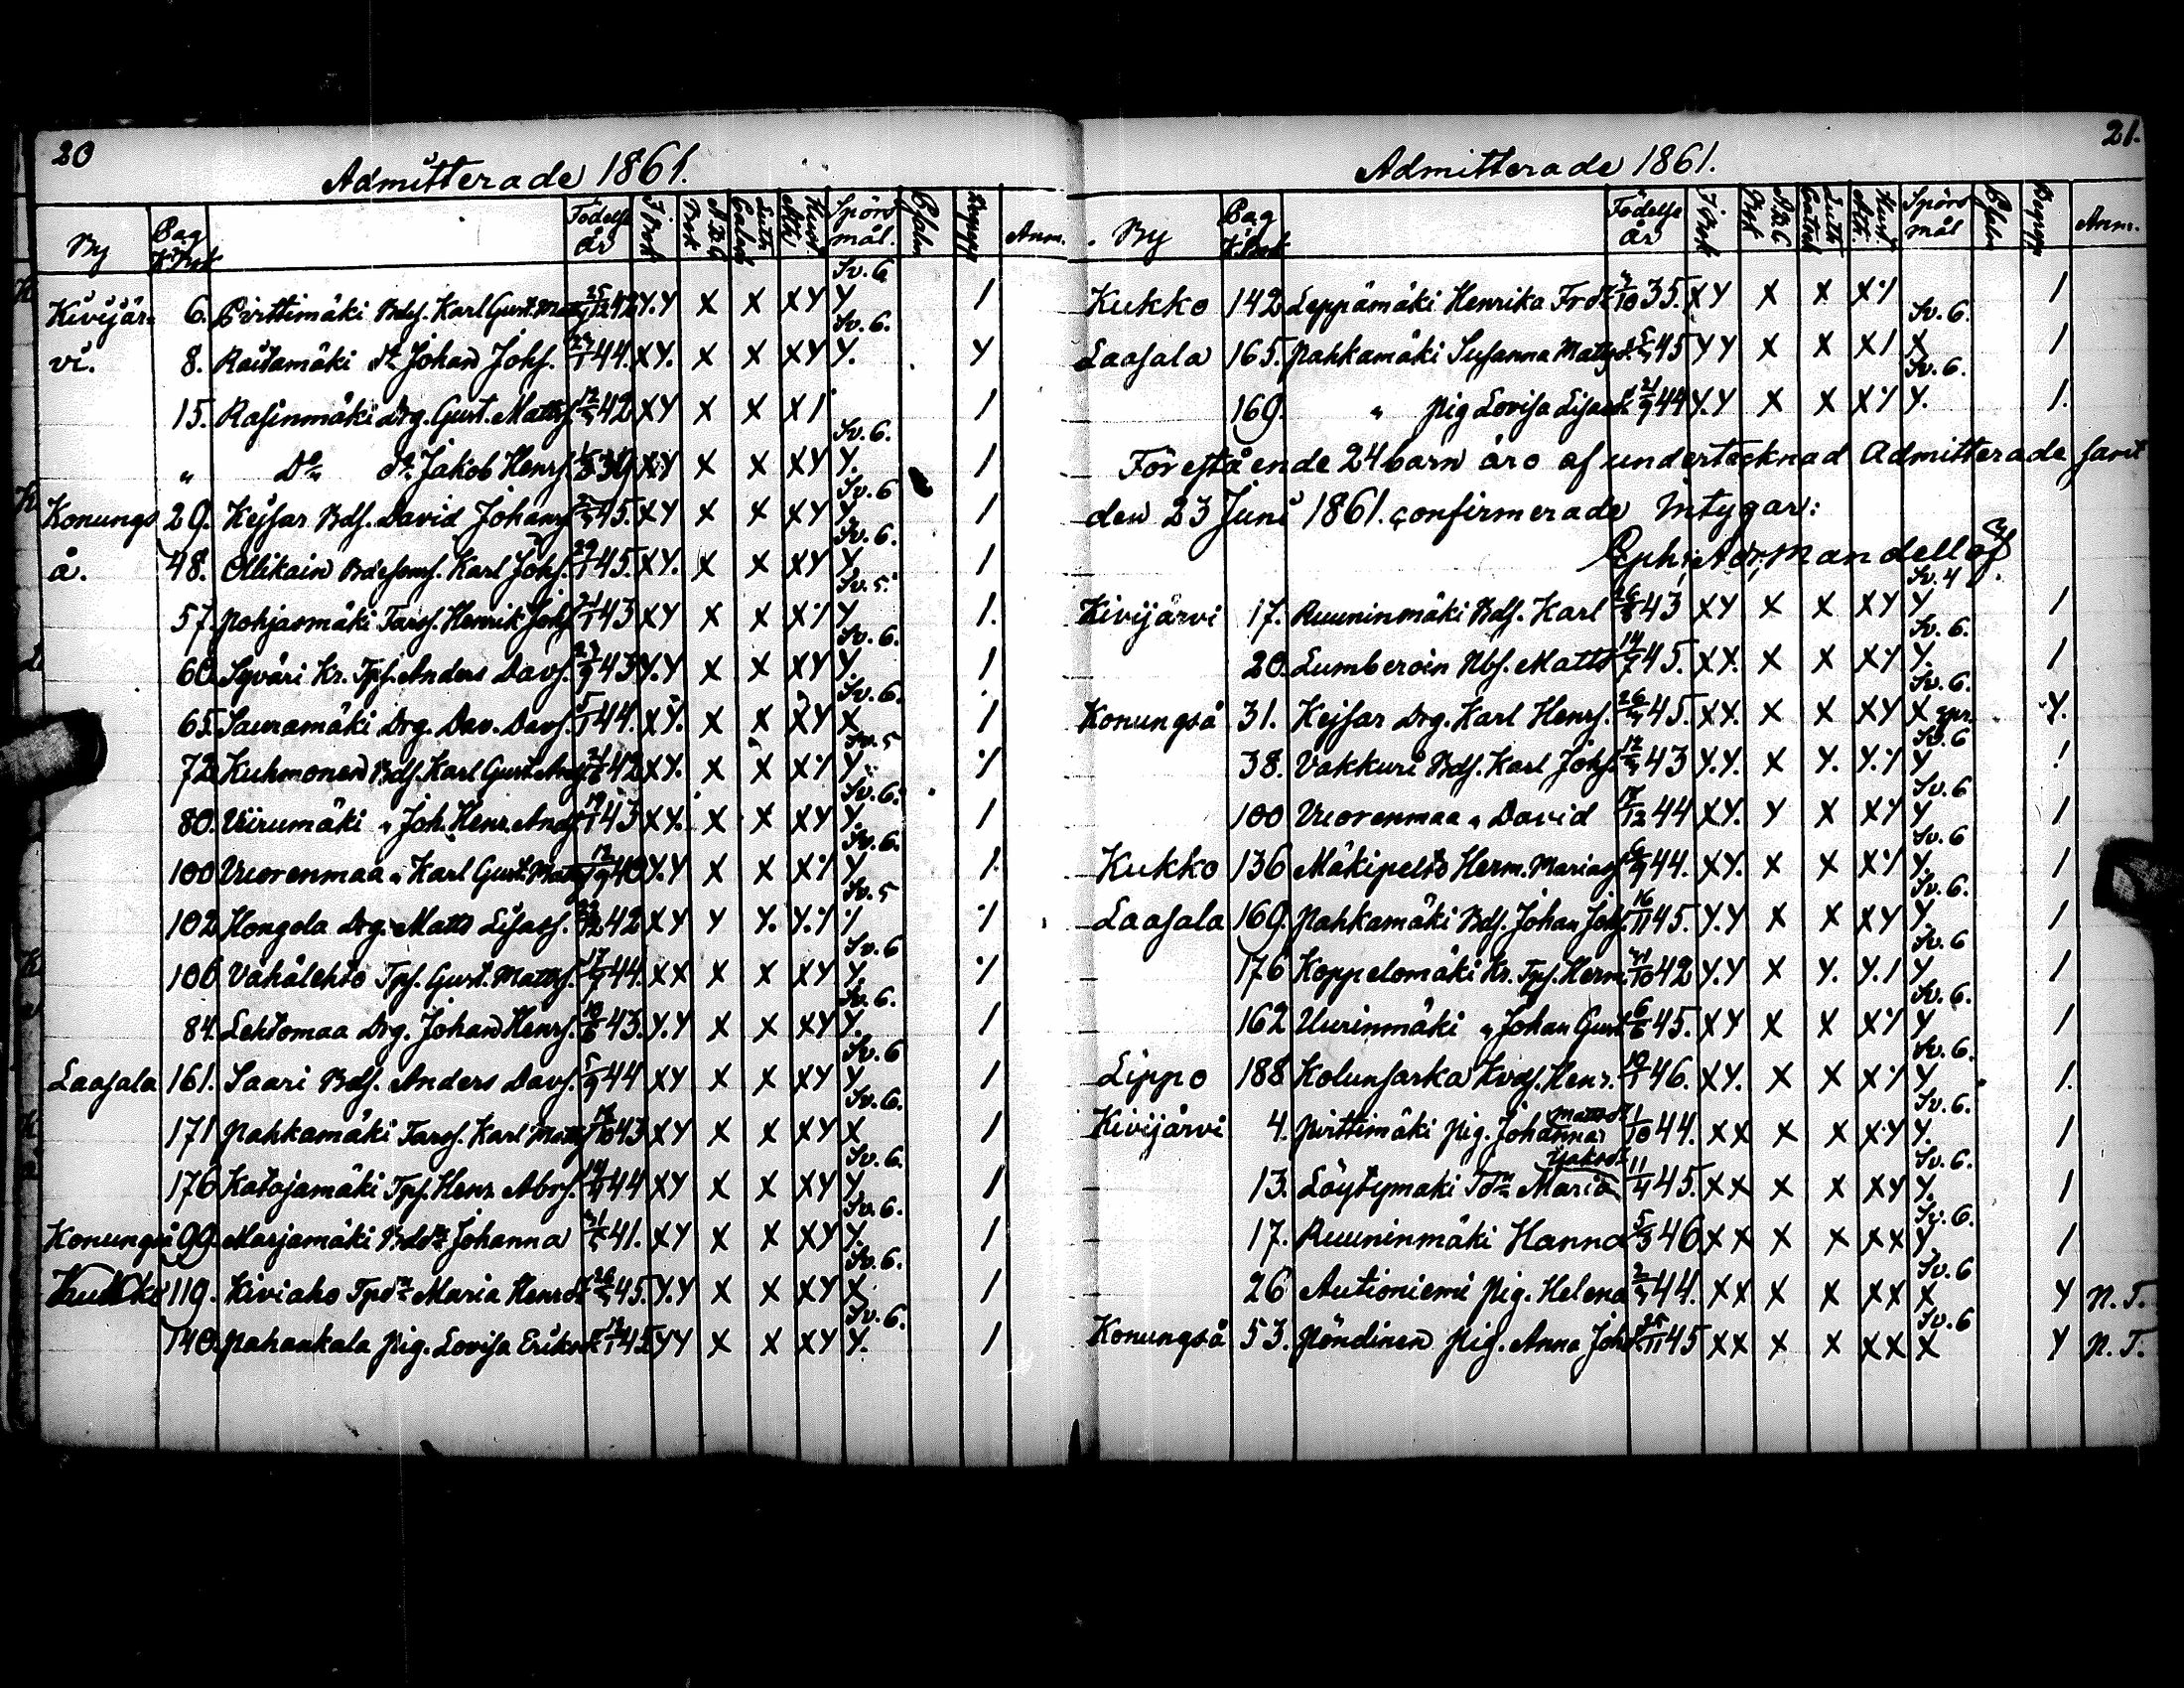 20
Admitterade 1861.
By Pag K.Bok Födelse år I Bok Bok A.B.C Luth Cateches Ath. Hust. Spörs mål. Psalm Begrepp Anm.
Kivijär- 6. Pirttimäki Bds. Karl Gust. Matts 25/12 42 Y.Y X X XY Sv. 6 Y /
vi. 8. Raitamäki do Johan Johs. 44. XY. X X XY Sv. 6. Y. Y
15. Rasinmäki Drg. Gust. Matts. 42 XY X X X/ /
„ Do do Jakob Henrs. 39 XY X X XY Sv. 6. Y. /
Konungs 29. Kejsar Bds. David Johans 45. XY X X XY Sv. 6 Y. /
å. 48. Ollikain Bdesons. Karl Johs. 45. XY. X X XY Sv. 6. Y /
57. Pohjasmäki Tars. Henrik Johs. 43 XY X X X/ Sv. 5. Y /.
60. Syväri Kr. Tps. Anders Davs. 43 Y.Y X X XY Sv. 6. Y. /
65. Sauramäki Drg. Dav. Davs. 5/1 44. XY. X X XY Sv. 6. X /
72. Kuhmonen Bds. Karl Gust. Ands 42 XY. X X X/ Sv. 5 Y. /
80. Viirumäki „ Joh. Henr. Ands 19/1 43 XY. X X XY Sv. 6. Y. /
100 Vuorenmaa „ Karl Gust. Matts 12/9 40 Y.Y X X X/ Sv. 6. Y /.
102 Hongola Drg. Matts Lisass. 42 XY Y Y. Y./ Sv. 5 / /
106 Vähälehto Tps. Gust. Matts. 44. XX X X XY Sv. 6 Y. /
84. Lehtomaa Drg. Johan Henrs. 43. Y.Y X X XY Sv. 6. Y. /
Laasala 161. Saari Bds. Anders Davs. 5/9 44 XY X X XY Sv. 6 Y. /
171 Pahkamäki Tars. Karl Matts 43 XY X X XY Sv. 6. X /
176 Katajamäki Tps. Henr. Abrs. 44 XY X X XY Sv. 6. Y. /
Konungså 99. Marjamäki Bddr Johanna 41. XY X X XY Sv. 6. Y. /
Kukko 119. Kiviaho Tpdr Maria Henrdr 45. Y.Y X X XY Sv. 6. X /
140. Pahankala Pig. Lovisa Eriksdr 45 YY X X XY Sv. 6. Y. /
21.
Admitterade 1861.
By Pag K.Bok Födelse år I Bok Bok A.B.C Luth Cateches Hust. Ath. Spörs mål Psalm Begrepp Anm.
Kukko 142 Leppämäki Henrika Frdr 35. XY X X X/ /
Laasala 165. Pahkamäki Susanna Matsdr. 45 YY X X X/ Sv. 6. X /
169. „ Pig Lovisa Lisasdr. 21/9 44 Y.Y X X X/ Sv. 6. Y. /.
Förestående 24 barn äro af undertecknad Admitterade samt
den 23 Juni 1861. confirmerade Intygar:
Eph: Adr. Mandellöf
Kivijärvi 17. Ruuninmäki Bds. Karl 43 XY X X XY Sv. 4 Y /
20. Lumberoin Nbs. Matts 14/7 45. XX. X X XY Sv. 6. Y. /
Konungså 31. Kejsar Drg. Karl Henrs. 45. XX. X X XY Sv. 6. X Y.
38. Vakkuri Bds. Karl Johs. 43 Y.Y. X Y. Y./ Sv. 6 Y /
100 Vuorenmaa „ David 44 XY. Y X XY Sv. 6 Y /
Kukko 136 Mäkipelto Herm. Mariass 44. XY. X X X/ Sv. 6 Y. /
Laasala 169. Pahkamäki Bds. Johan Johs. 16/11 45. Y.Y X X XY Sv. 6. Y. /
176 Koppelomäki Kr. Tps. Herm. 42 Y.Y X Y. Y./ Sv. 6 Y. /
162 Uurinmäki „ Johan Gust. 6/6 45. XY X X X/ Sv. 6. Y /
Lippo 188 Kolunsarka Kvds. Henr. 46. XY. X X X/ Sv. 6. Y /.
Kivijärvi 4. Pirttimäki Pig. Johanna Mattsdr 1/10 44. XX X X XY Sv. 6. Y. /
13. Löytymäki Tdr Maria Jaksdr 11/4 45. XX X X XY Sv. 6. Y. /
17. Ruuninmäki Hanna 5/3 46 XX X X XX Sv. 6. Y /
26 Autioniemi Pig. Helena 44. XX X X XX Sv. 6 X Y N.T.
Konungså 53. Pöndinen Pig. Anna Johdr 45 XX X X XX Sv. 6 X Y N.T.